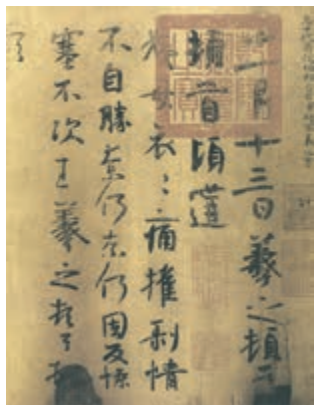 十一月十三日羲之頓首
頓首頃遘
姨母哀〻痛摧剝情
不自勝奈何奈何因反慘
塞不次王羲之頓首頓
首